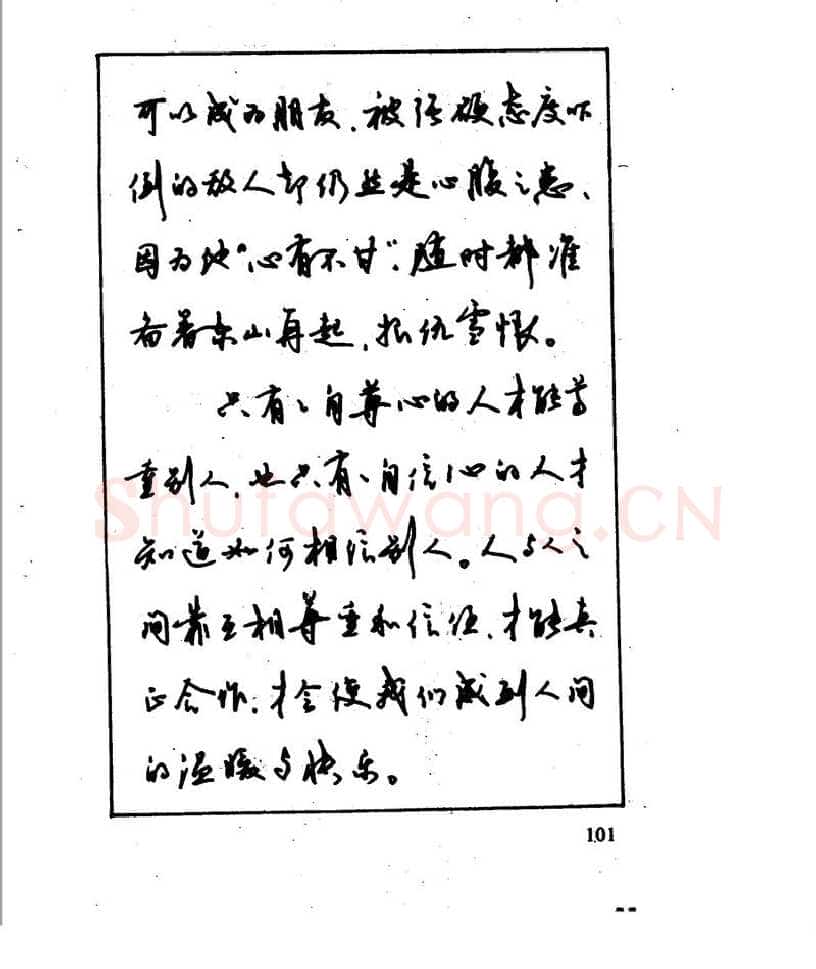 可以成为朋友，被强硬态度吓
倒的敌人却仍然是心腹之患、
因为他“心有不甘”，随时都准
备着东山再起，报仇雪恨。
只有有自尊心的人才能尊
重别人，也只有有自信心的人才
知道如何相信别人。人与人之
间靠互相尊重和信任，才能真
正合作，才会使我们感到人间
的温暖与快乐。
101
Shufawang.CN